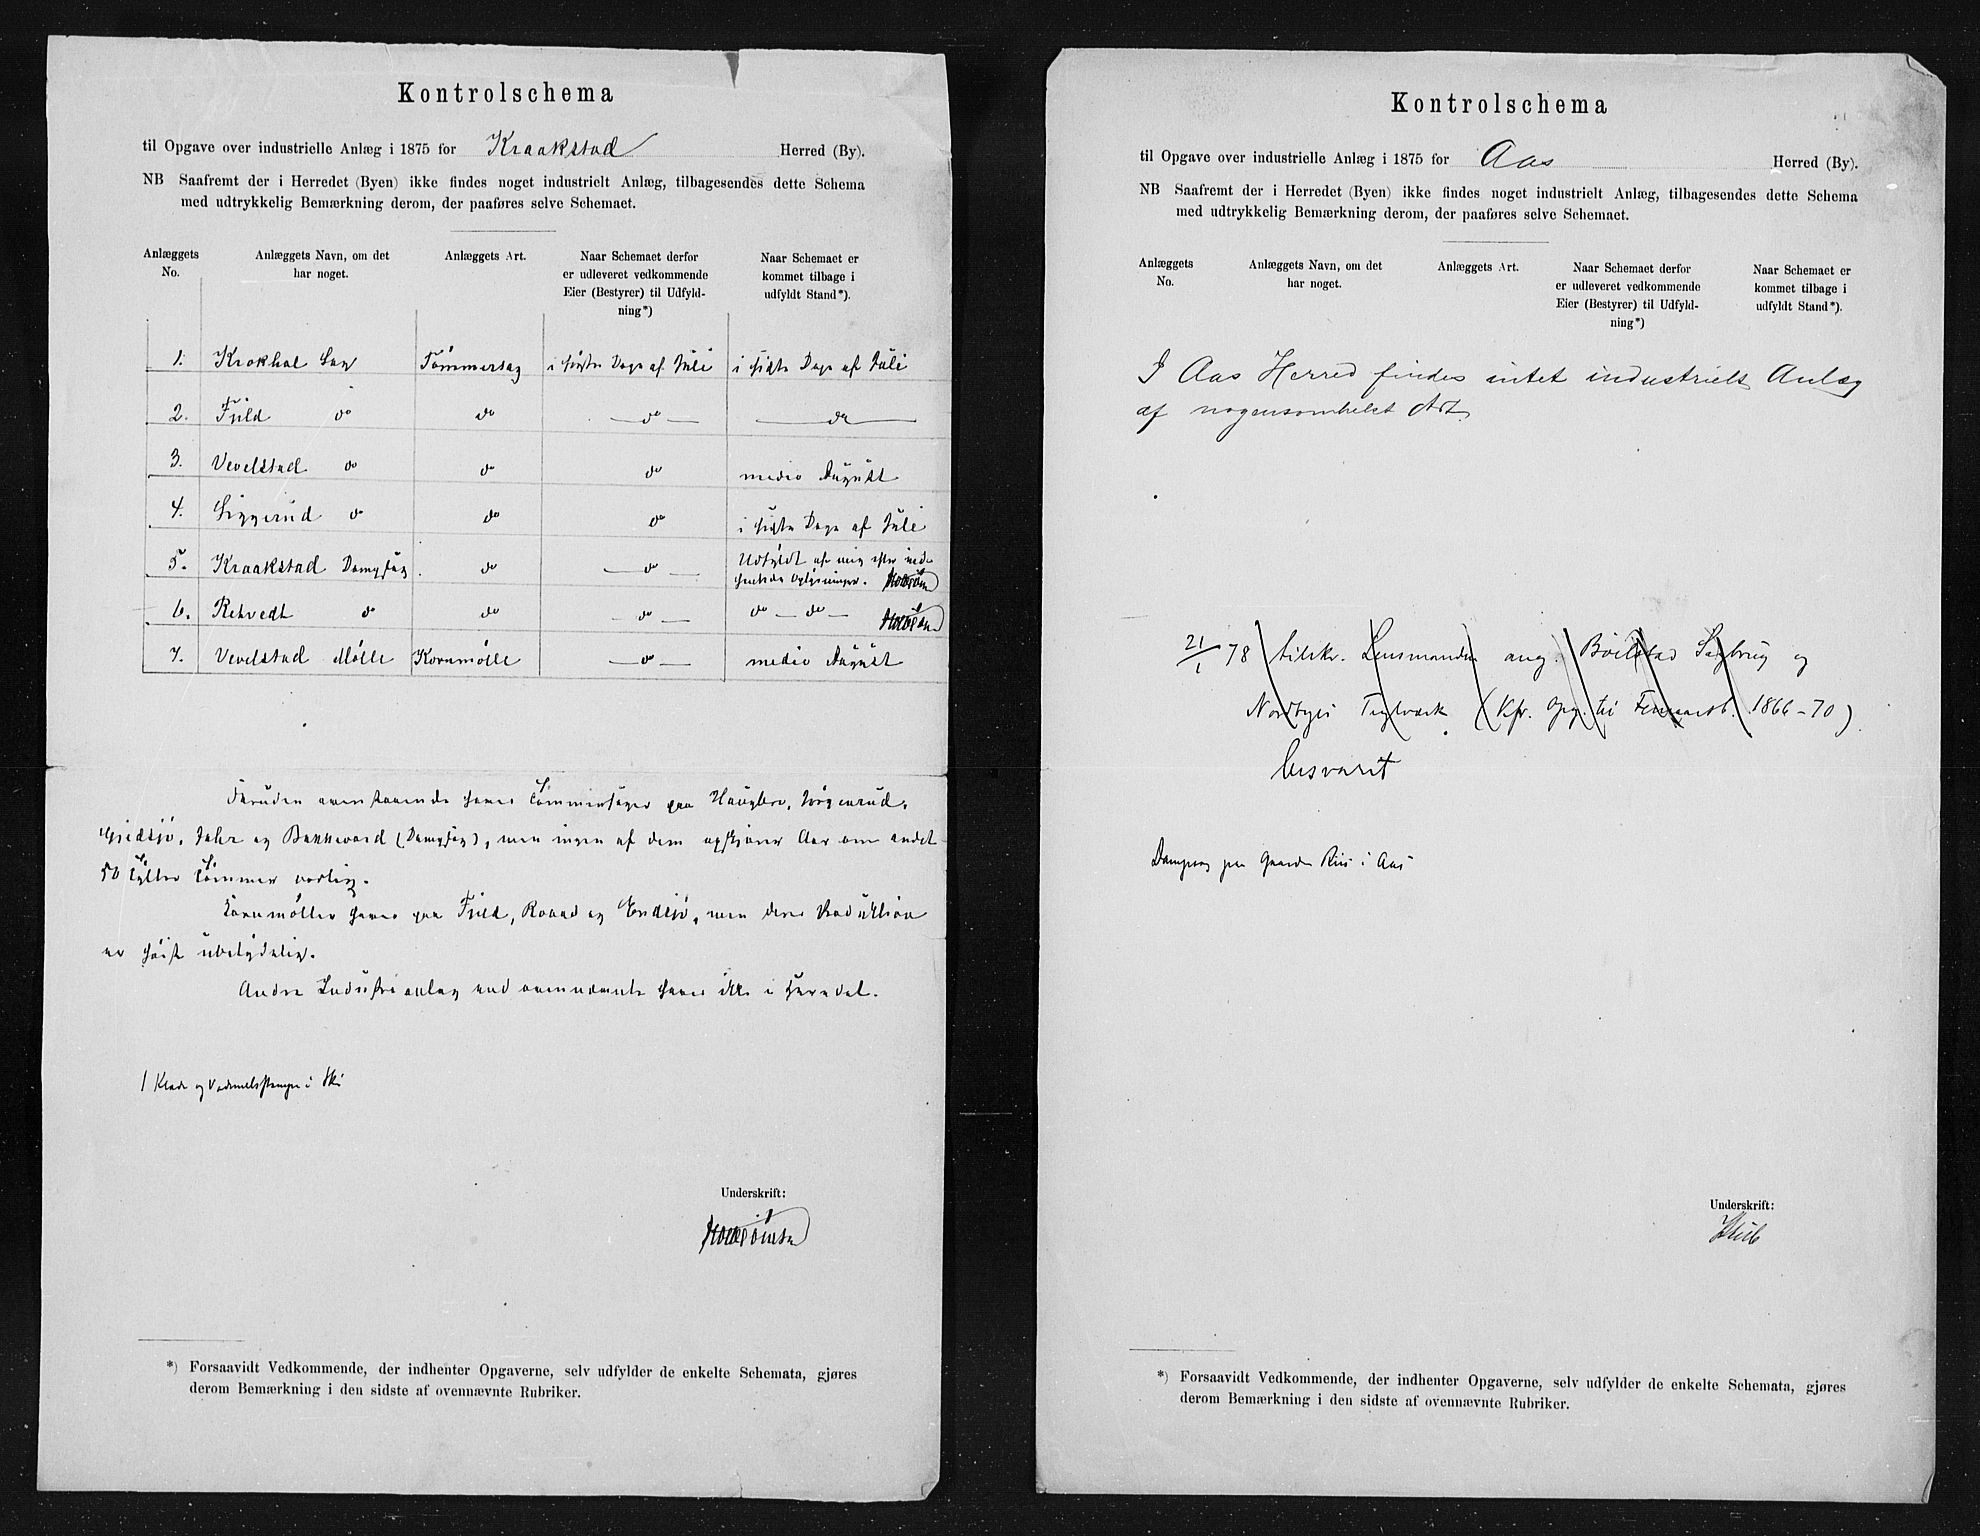 Kontrolschema
til Opgave over industrielle Anlæg i 1875 for Kraakstad Herred (By).
NB Saafremt der i Herredet (Byen) ikke findes noget industrielt Anlæg, tilbagesendes dette Schema
med udtrykkelig Bemærkning derom, der paaføres selve Schemaet.
Anlæggets No. Anlæggets Navn, om det har noget. Anlæggets Art. Naar Schemaet derfor er udleveret vedkommende Eier (Bestyrer) til Udfyldning*) Naar Schemaet er kommet tilbage i udfyldt Stand*).
1. Krokhol Sag Tømmersag i første Dage af Juli i sidste Dage af Juli
2. Fuld do do do do
3. Vevelstad do do do medio August
4. Siggerud do do do i sidste Dage af Juli
5. Kraakstad Dampsag do do Udfyldt af mig efter ind-
hentede Oplysninger.
6. Retvedt do do do do do
7. Vevelstad Mølle Kornmølle do medio August
Foruden ovenstaaende haves Tømmersager paa Haugbro,
og (Dampsag), men ingen af dem opskjærer Aar om andet
50 Tylter Tømmer
Kornmøller haves paa Fuld, Roaad og Endsjø, men deres Produktion
er høist ubetydelig.
Andre Industrianlæg end ovennævnte haves ikke i Herredet.
1 Klæde og Vadmelsstampe i Ski
Underskrift:
*) Forsaavidt Vedkommende, der indhenter Opgaverne, selv udfylder de enkelte Schemata, gjøres
derom Bemærkning i den sidste af ovennævnte Rubriker.
Kontrolschema
til Opgave over industrielle Anlæg i 1875 for Aas Herred (By).
NB Saafremt der i Herredet (Byen) ikke findes noget industrielt Anlæg, tilbagesendes dette Schema
med udtrykkelig Bemærkning derom, der paaføres selve Schemaet.
Anlæggets No. Anlæggets Navn, om det har noget. Anlæggets Art. Naar Schemaet derfor er udleveret vedkommende Eier (Bestyrer) til Udfyldning*) Naar Schemaet er kommet tilbage i udfyldt Stand*).
I Aas Herred findes intet industrielt Anlæg
af nogensomhelst Art.
21/1 78 tilskr. Lensmanden ang. Bølstad Sagbrug og
Nordbyes Teglværk (Kfr. Opg. til Femaarsb. 1866-70)
besvaret
Dampsag paa Gaarden Riis i Aas
Underskrift:
*) Forsaavidt Vedkommende, der indhenter Opgaverne, selv udfylder de enkelte Schemata, gjøres
derom Bemærkning i den sidste af ovennævnte Rubriker.